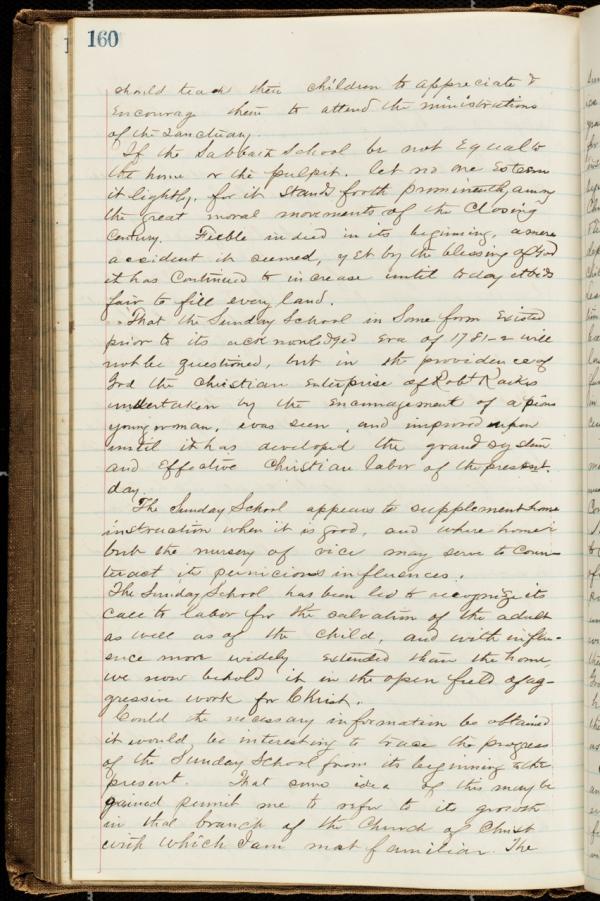 160
should teach their children to appreciate &
encourage them to attend the ministrations
of the Sanctuary.
If the Sabbath School be not Equal to
the home or the pulpit. let no one Esteem
it lightly, for it stands forth prominently among
the great moral movements of the Closing
Century. Feeble indeed in its beginning, a mere
accident it seemed, yet by the blessing of God
it has Continued to increase until today it bids
fair to fill every land.
That the Sunday School in Some form Existed
prior to its acknowledged Era of 1781-2 will
not be questioned, but in the providence of
God the Christian Enterprise of Robt Raikes
undertaken by the Encouragement of a pious
young woman, was seen, and improved upon
until it has developed the grand system
and Effective Christian labor of the present.
day.
The Sunday School appears to supplement home
instruction when it is good, and where home is
but the nursery of vice may serve to coun-
teract its pernicious influences.
The Sunday School has been led to recognize its
call to labor for the salvation of the adult
as well as of the child, and with influ-
ence more widely extended than the home,
we now behold it in the open field of ag-
gressive work for Christ.
Could the necessary information be obtained
it would be interesting to trace the progress
of the Sunday School from its beginning to the
present. That some idea of this may be
gained permit me to refer to its growth
in that branch of the Church of Christ
with which I am most familiar. The